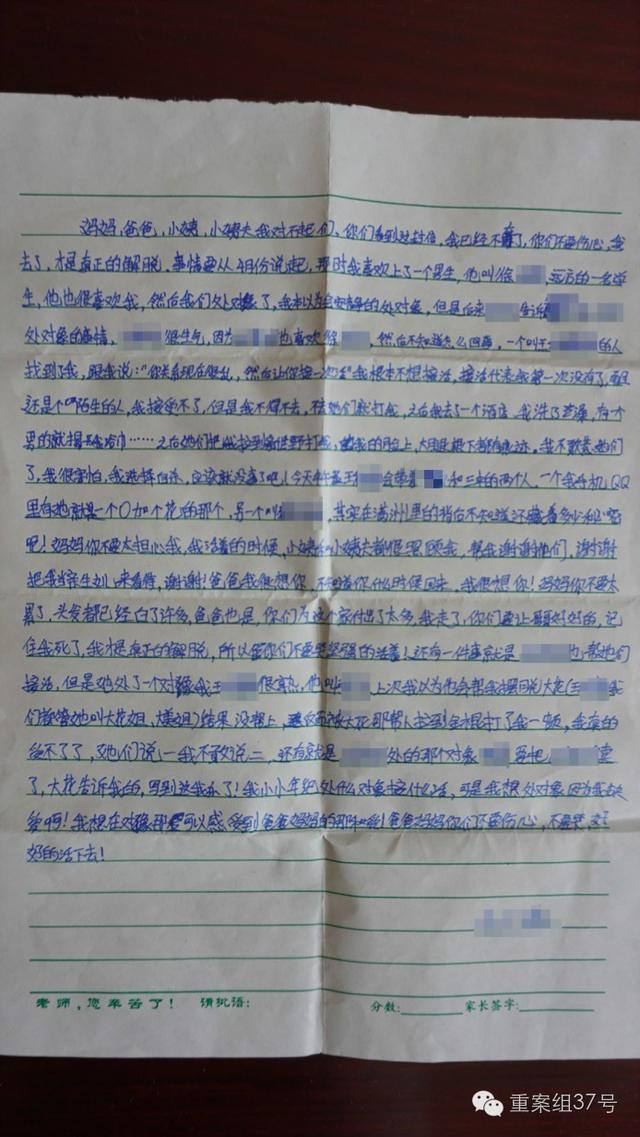 妈妈,爸爸,小姨,小姨夫我对不起们,你们看到这封信,我已经不在了,你们不要伤心,我
去了,才是真正的解脱。事情要从4月份说起,那时我喜欢上了一个男生,他叫徐 远方的一名学
生,他也很喜欢我,然后我们久处对象了,我本以为会安静的处对象,但是后来 告诉
处对象的事情, 很生气,因为 也喜欢徐 ,然后不知道怎么回事,一个叫王 的人
找到了我,跟我说:"你关系现在很乱,然后让你接一次活"我根本不想接活,接活代表我第一次没有了,而且
还是个陌生的人,我接受不了,但是我不得不去,不去她们就打我,之后我去了一个酒店,我洗了苹澡,有个
男的就 浴巾……之后她们把我拉到 野打我, 我的脸上,大腿 都有 迹,我不敢 她们
了,我很害怕,我选择自杀,应该就没事了吧!今天 王 会带着 和三来的两个人,一个我手机QQ
里有她就是一个〇加个花的那个,另一个叫 ,其实在满洲里的背后不知道还藏着多少秘密
吧!妈妈你不要太担心我,我活着的时候,小姨和小姨夫都很照顾我,帮我谢谢他们,谢谢
把我当亲生女儿来看待,谢谢!爸爸我很想你,不知道你什么时候回来,我很想你!妈妈你不要太
累了,头发都已经白了许多,爸爸也是,你们为这个家付出了太多,我走了,你们要让哥哥好好的,记
住我死了,我才是真正的解脱,所以 你们不要 坚强的活着!还有一件事就是 也 帮她们
接活,但是她处了一个对象我王 很高兴,他叫 上次我以为他会帮我摆脱大花(王 我
们都管她叫大花姐,大姜姐)结果没想上, 反而被大花那帮人找到 打了我一顿,我真的
受不了了,又她们说(一我不敢说二,还有就是 处的那个对象 要把 卖
了,大花告诉我的,写到这我 了!我小小年纪处什么对象接什么活,可是我想处对象因为我缺
爱啊!我想在对象那里可以感受到爸爸妈妈的 !爸爸妈妈你们不要伤心,不要哭,好
好的活下去!
老师,您辛苦了! 请批语: 分数: 家长签字:
重案组37号